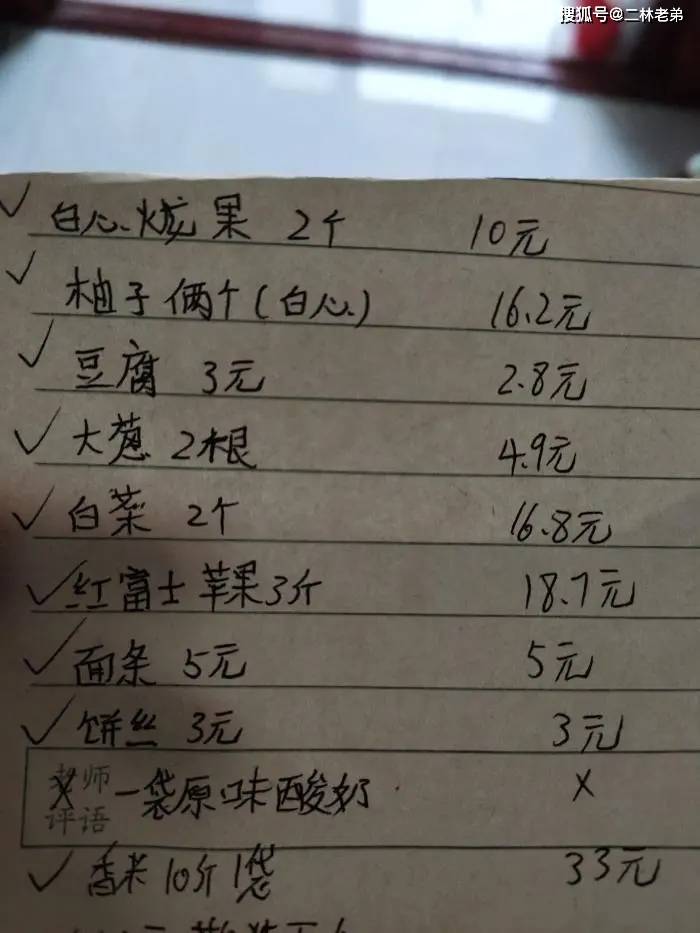 搜狐号@二林老弟
✓ 白心火龙果 2个 10元
✓ 柚子 俩个(白心) 16.2元
✓ 豆腐 3元 2.8元
✓ 大葱 2根 4.9元
✓ 白菜 2个 16.8元
✓ 红富士苹果3斤 18.7元
✓ 面条 5元 5元
✓ 饼丝 3元 3元
老师
评语
x 一袋原味酸奶 x
✓ 香米10斤1袋 33元